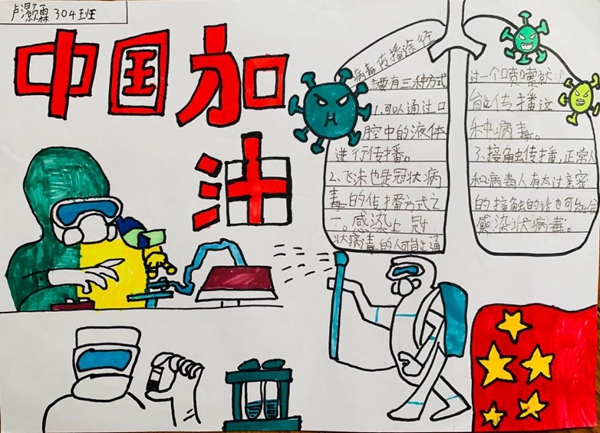 304班
中国加
油
病毒传播途径
有三种方式
1.可以通过口
腔中的液体
进行传播。
2.飞沫也是冠状病
毒的传播方式之
一。感染上冠
状病毒的人可能会通
过一个喷嚏就
能传播这
种病毒。
3.接触传播,正常人
和病毒人有太过亲密
的接触的话也可能会
感染状病毒。